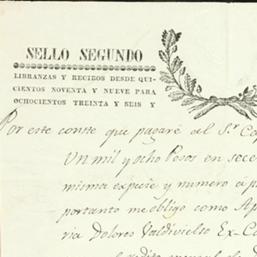 SELLO SEGUNDO
LIBRANZAS Y RECIBOS DESDE QUI-
CIENTOS NOVENTA Y NUEVE PARA
OCHOCIENTOS TREINTA Y SEIS Y
Por este conste que pagaré al S.r
Un mil y ocho Pesos en
misma especie y numero
portanto me obligo como
ria Dolores Valdivielso Ex-